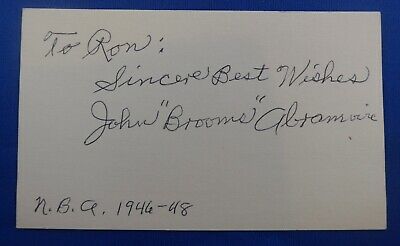 To Ron:
Sincere Best Wishes
John "Brooms" Abramovic
N.B.A. 1946-48